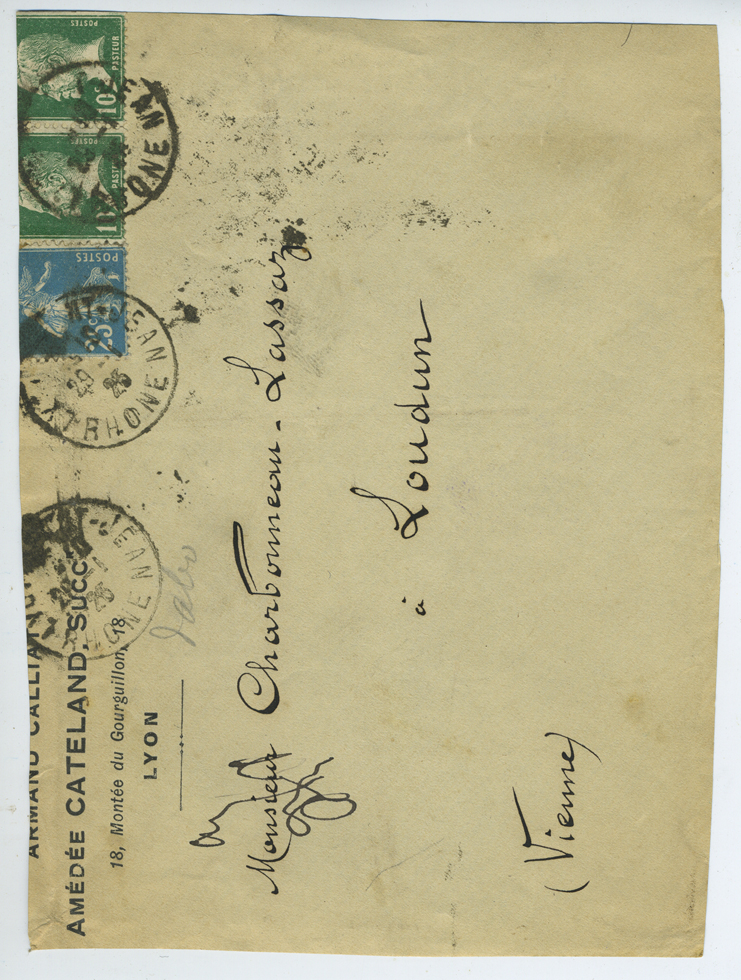 ARMAND CALLIAT
AMÉDÉE CATELAND, SUCC
18, Montée du Gourguillon, 18
LYON
POSTES
25c
POSTES
PASTEUR
10c
POSTES
PASTEUR
10c
RHONE
29
25
RHONE
Monsieur Charbonneau-Lassay
à Loudun
(Vienne)